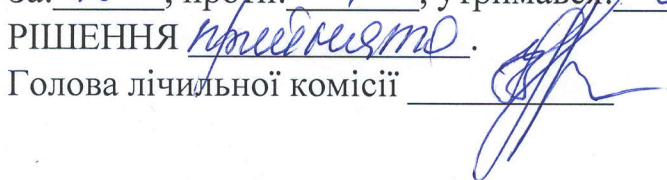 За: , проти: , утримався:
РІШЕННЯ прийнято.
Голова лічильної комісії